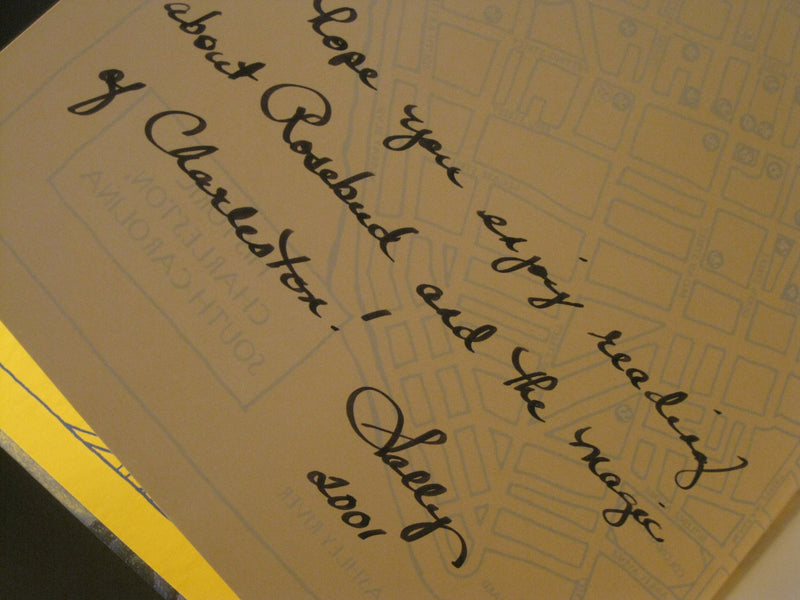 hope you enjoy reading
about Rosebud and the magic
of Charleston.
Sally
2001
CHARLESTON,
SOUTH CAROLINA
ASHLEY RIVER